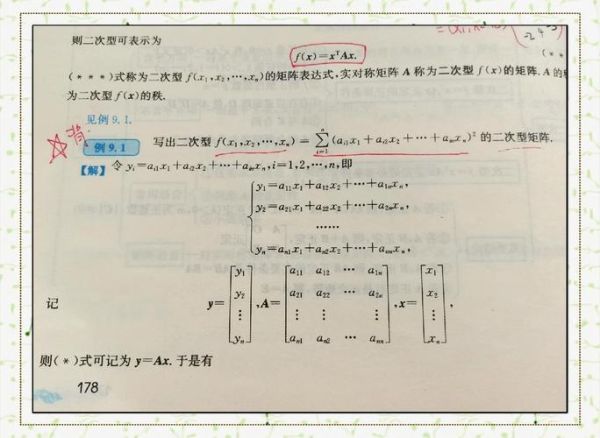 则二次型可表示为
f(x)=xᵀAx.
(***)式称为二次型 f(x₁,x₂,⋯,xₙ)的矩阵表达式,实对称矩阵 A 称为二次型 f(x)的矩阵. A 的
为二次型 f(x)的秩.
见例9.1.
例 9.1 写出二次型 f(x₁,x₂,⋯,xₙ) = ∑ᵢ₌₁ⁿ (aᵢ₁x₁+aᵢ₂x₂+⋯+aᵢₙxₙ)² 的二次型矩阵.
【解】 令 yᵢ=aᵢ₁x₁+aᵢ₂x₂+⋯+aᵢₙxₙ,i=1,2,⋯,n,即
y₁=a₁₁x₁+a₁₂x₂+⋯+a₁ₙxₙ,
y₂=a₂₁x₁+a₂₂x₂+⋯+a₂ₙxₙ,
⋯⋯
yₙ=aₙ₁x₁+aₙ₂x₂+⋯+aₙₙxₙ,
记 y=[y₁ y₂ ⋮ yₙ], A=[a₁₁ a₁₂ ⋯ a₁ₙ a₂₁ a₂₂ ⋯ a₂ₙ ⋮ ⋮ ⋮ aₙ₁ aₙ₂ ⋯ aₙₙ], x=[x₁ x₂ ⋮ xₙ],
则(*)式可记为 y=Ax. 于是有
178